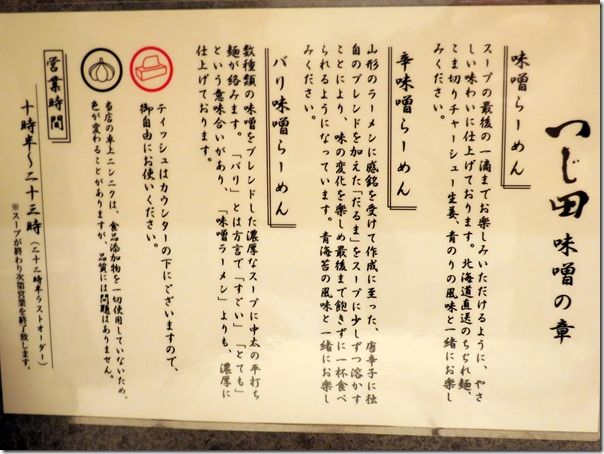 つじ田 味噌の章
味噌らーめん
スープの最後の一滴までお楽しみいただけるように、やさ
しい味わいに仕上げております。北海道直送のちぢれ麺、
こま切りチャーシュー生姜、青のりの風味と一緒にお楽し
みください。
辛味噌らーめん
山形のラーメンに感銘を受けて作成に至った、唐辛子に独
自のブレンドを加えた「だるま」をスープに少しずつ溶かす
ことにより、味の変化を楽しめ最後まで飽きずに一杯食べ
られるようになっています。青海苔の風味と一緒にお楽し
みください。
バリ味噌らーめん
数種類の味噌をブレンドした濃厚なスープに中太の平打ち
麺が絡みます。「バリ」とは方言で「すごい」「とても」
という意味合いがあり、「味噌ラーメン」よりも、濃厚に
仕上げております。
ティッシュはカウンターの下にございますので、
御自由にお使いください。
当店の卓上ニンニクは、食品添加物を一切使用していないため、
色が変わることがありますが、品質には問題はありません。
営業時間
十時半〜二十三時（二十二時半ラストオーダー）
※スープが終わり次第営業を終了致します。